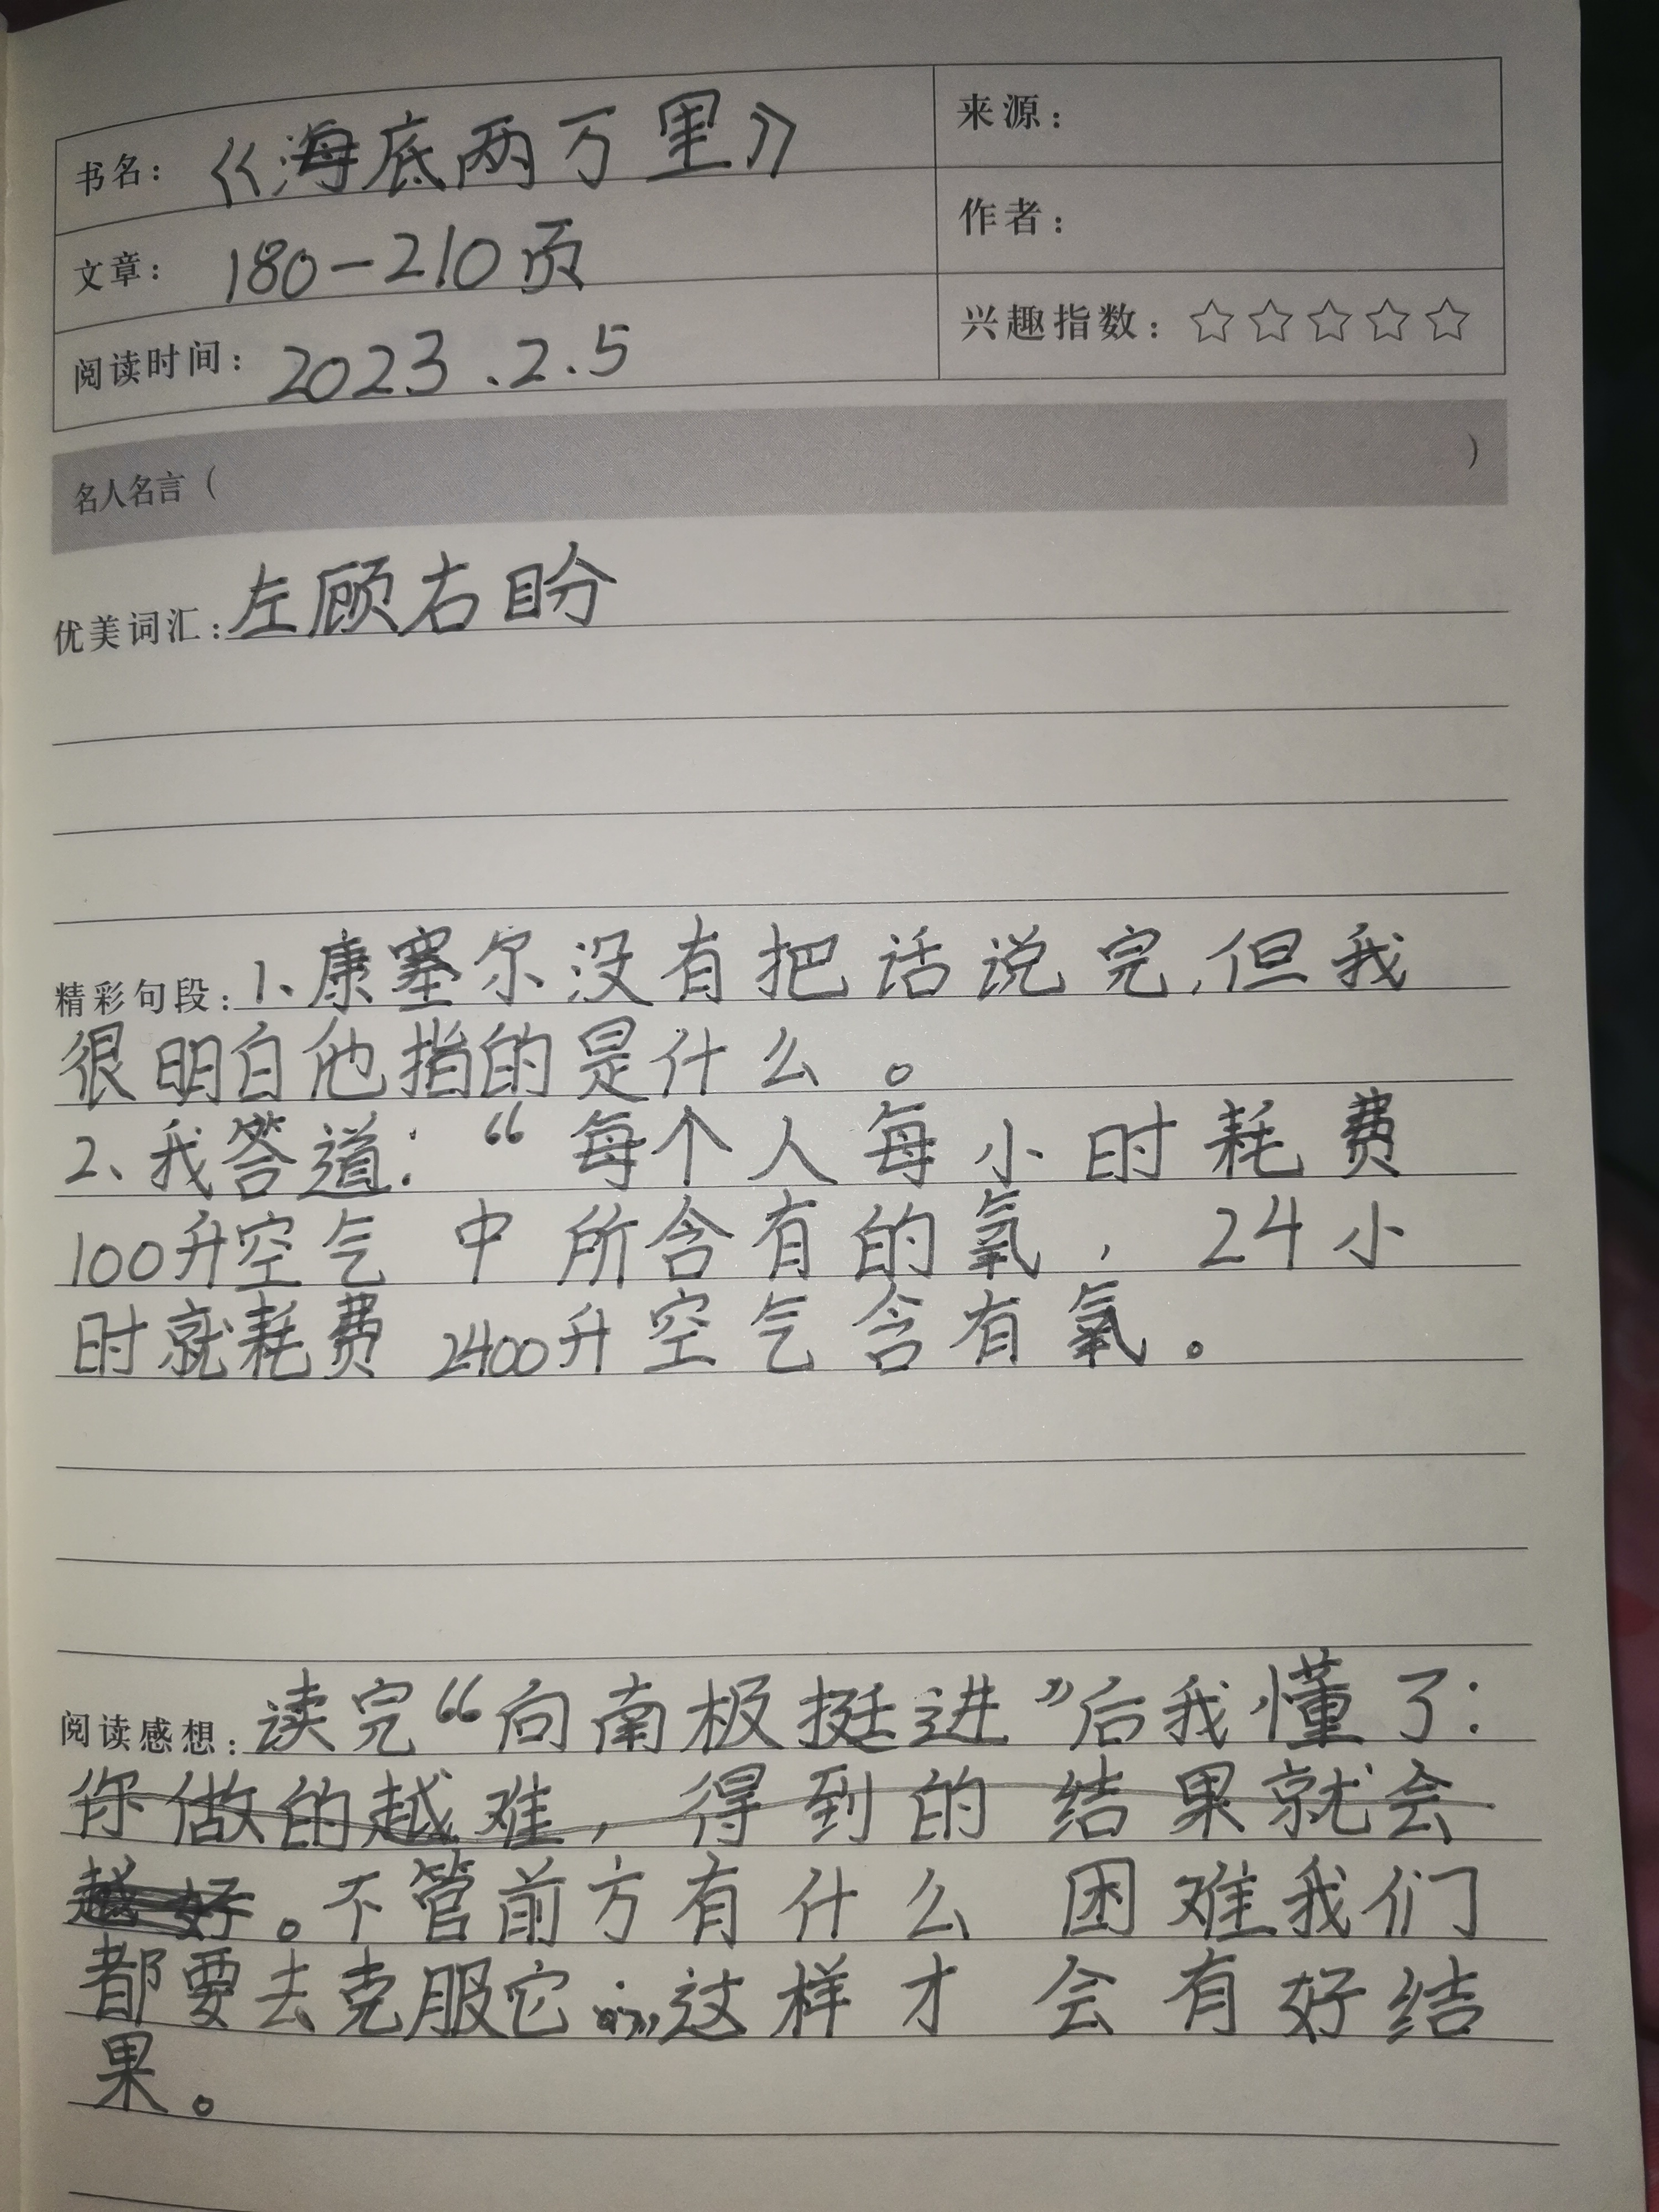 书名：《海底两万里》
来源：
文章：180-210页
作者：
阅读时间：2023.2.5
兴趣指数：☆☆☆☆☆
名人名言（ ）
优美词汇：左顾右盼
精彩句段：1、康塞尔没有把话说完,但我
很明白他指的是什么。
2、我答道：“每个人每小时耗费
100升空气中所含有的氧，24小
时就耗费2400升空气含有氧。
阅读感想：读完“向南极挺进”后我懂了：
你做的越难，得到的结果就会
越好。不管前方有什么困难我们
都要去克服它 这样才会有好结
果。